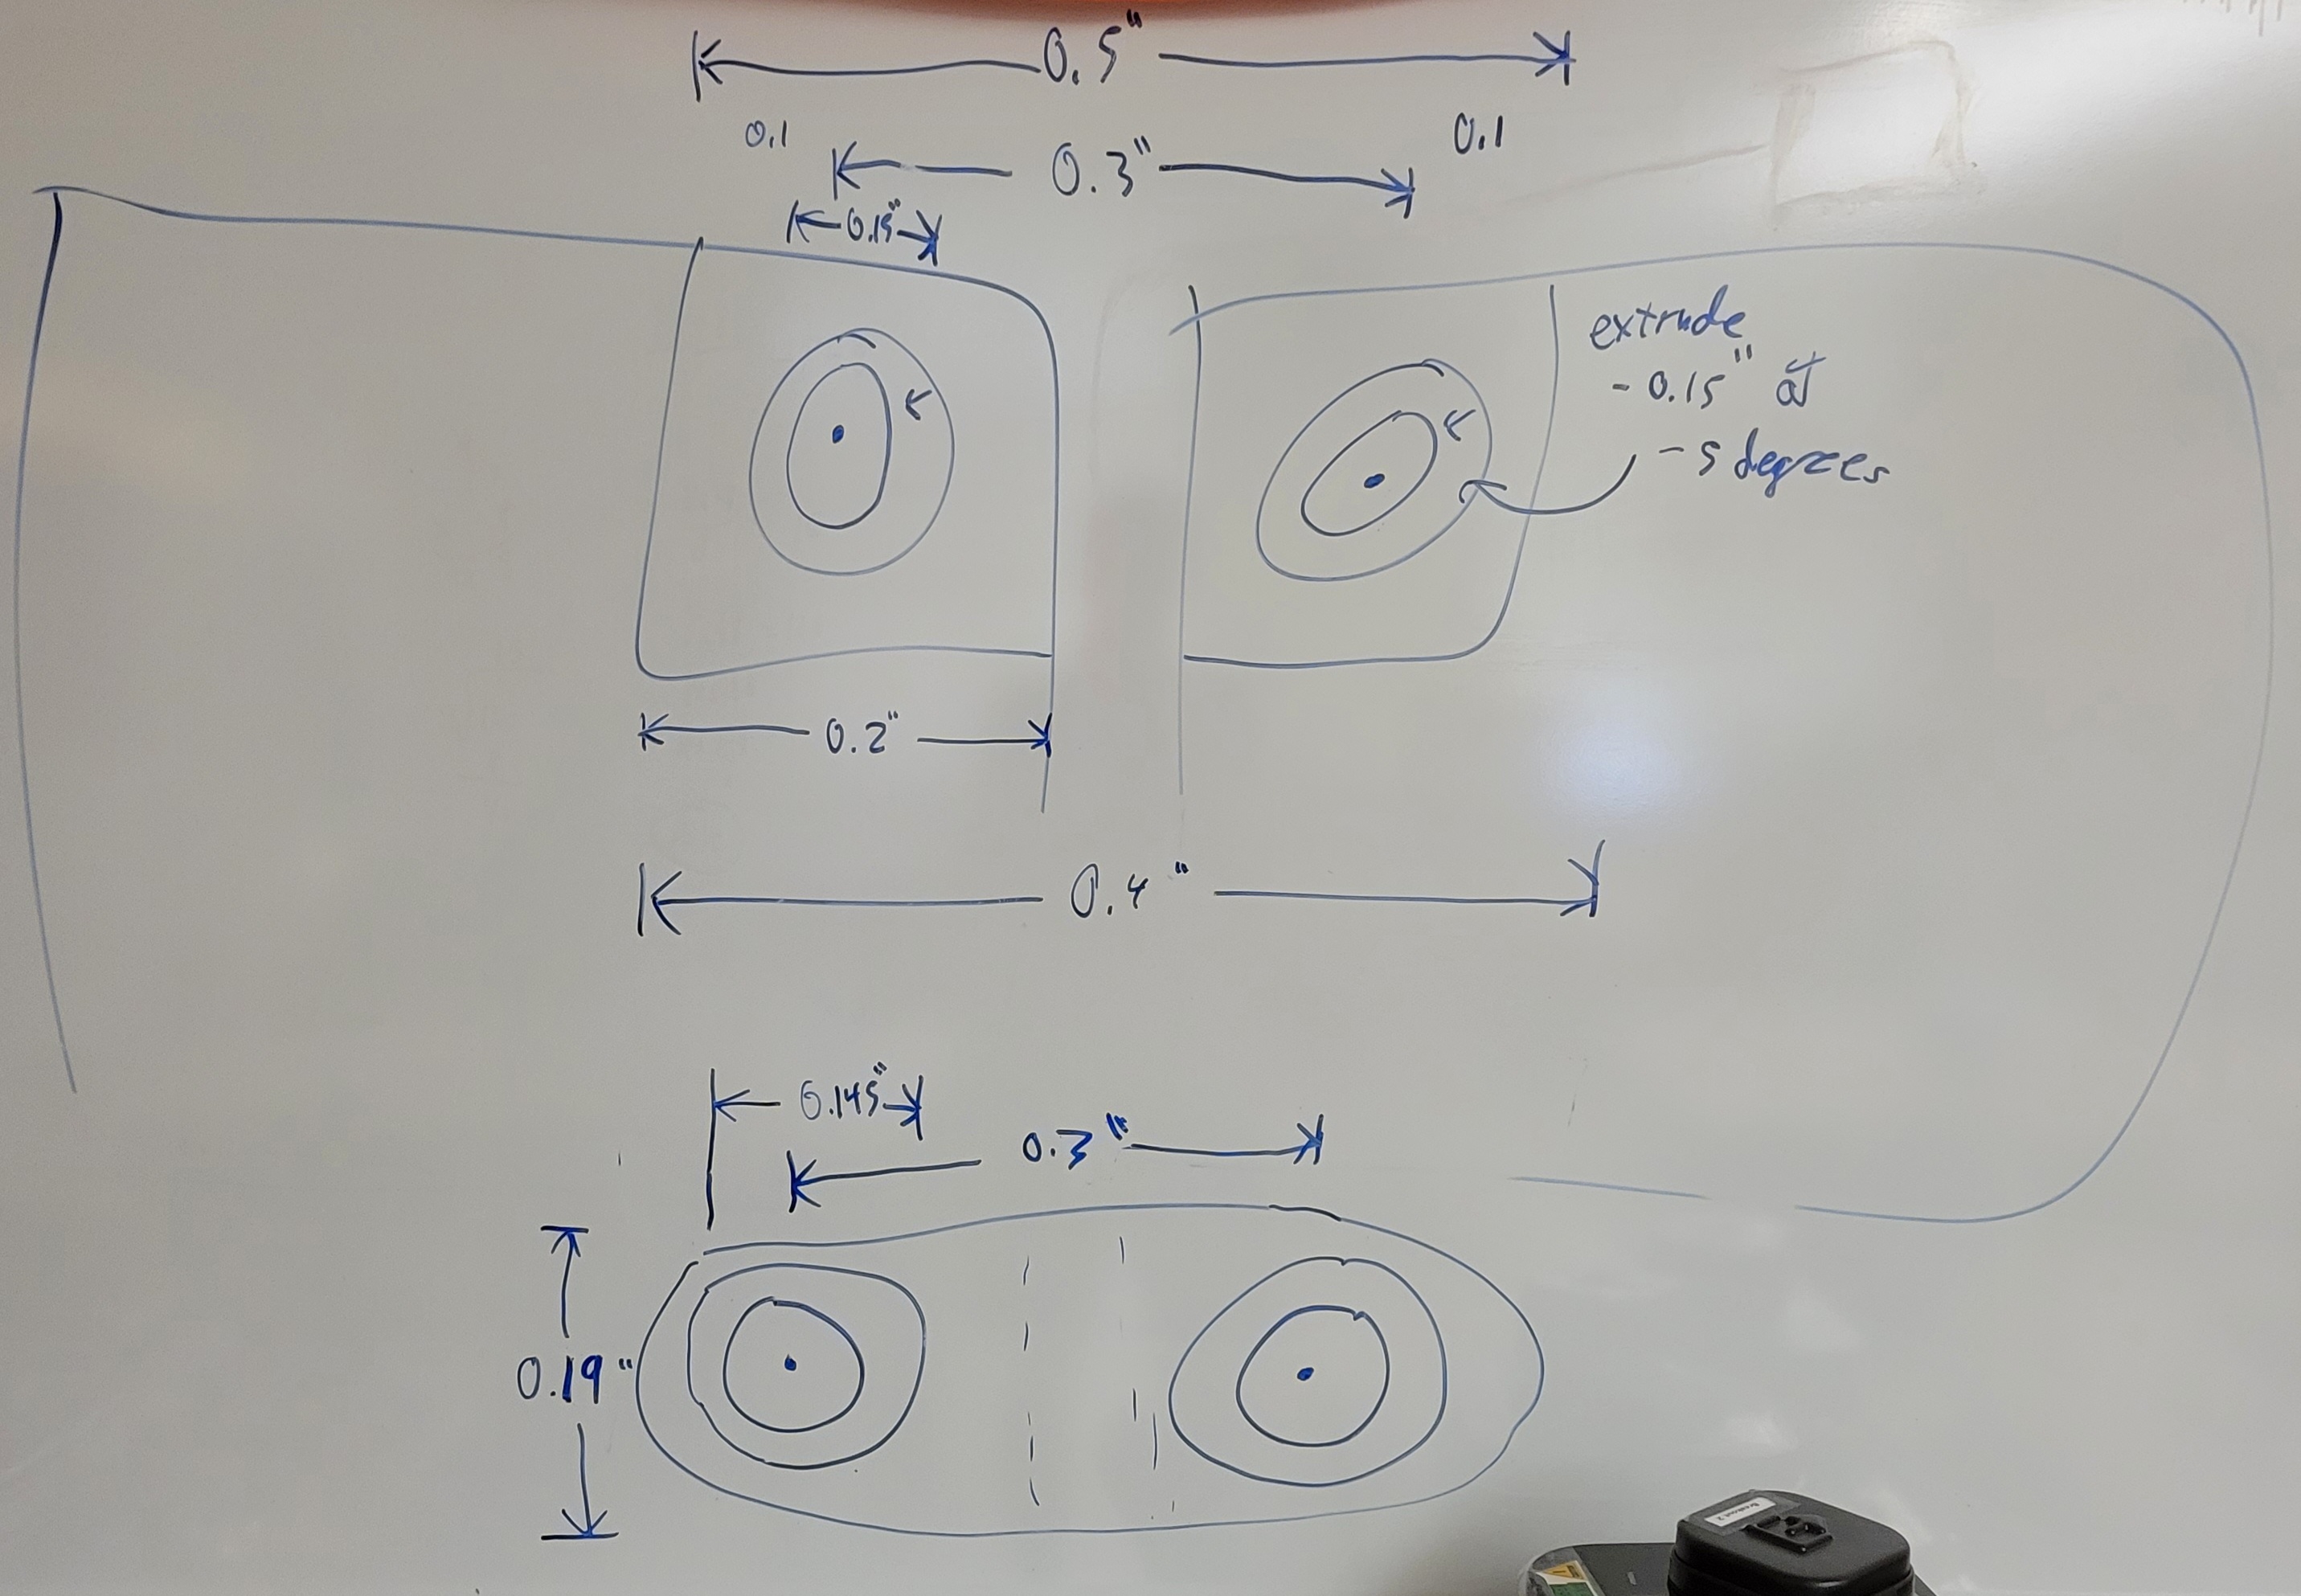 0.5"
0.1
0.3"
0.1
0.15"
extrude
- 0.15" at
- 5 degrees
0.2"
0.4"
0.145"
0.3"
0.19"